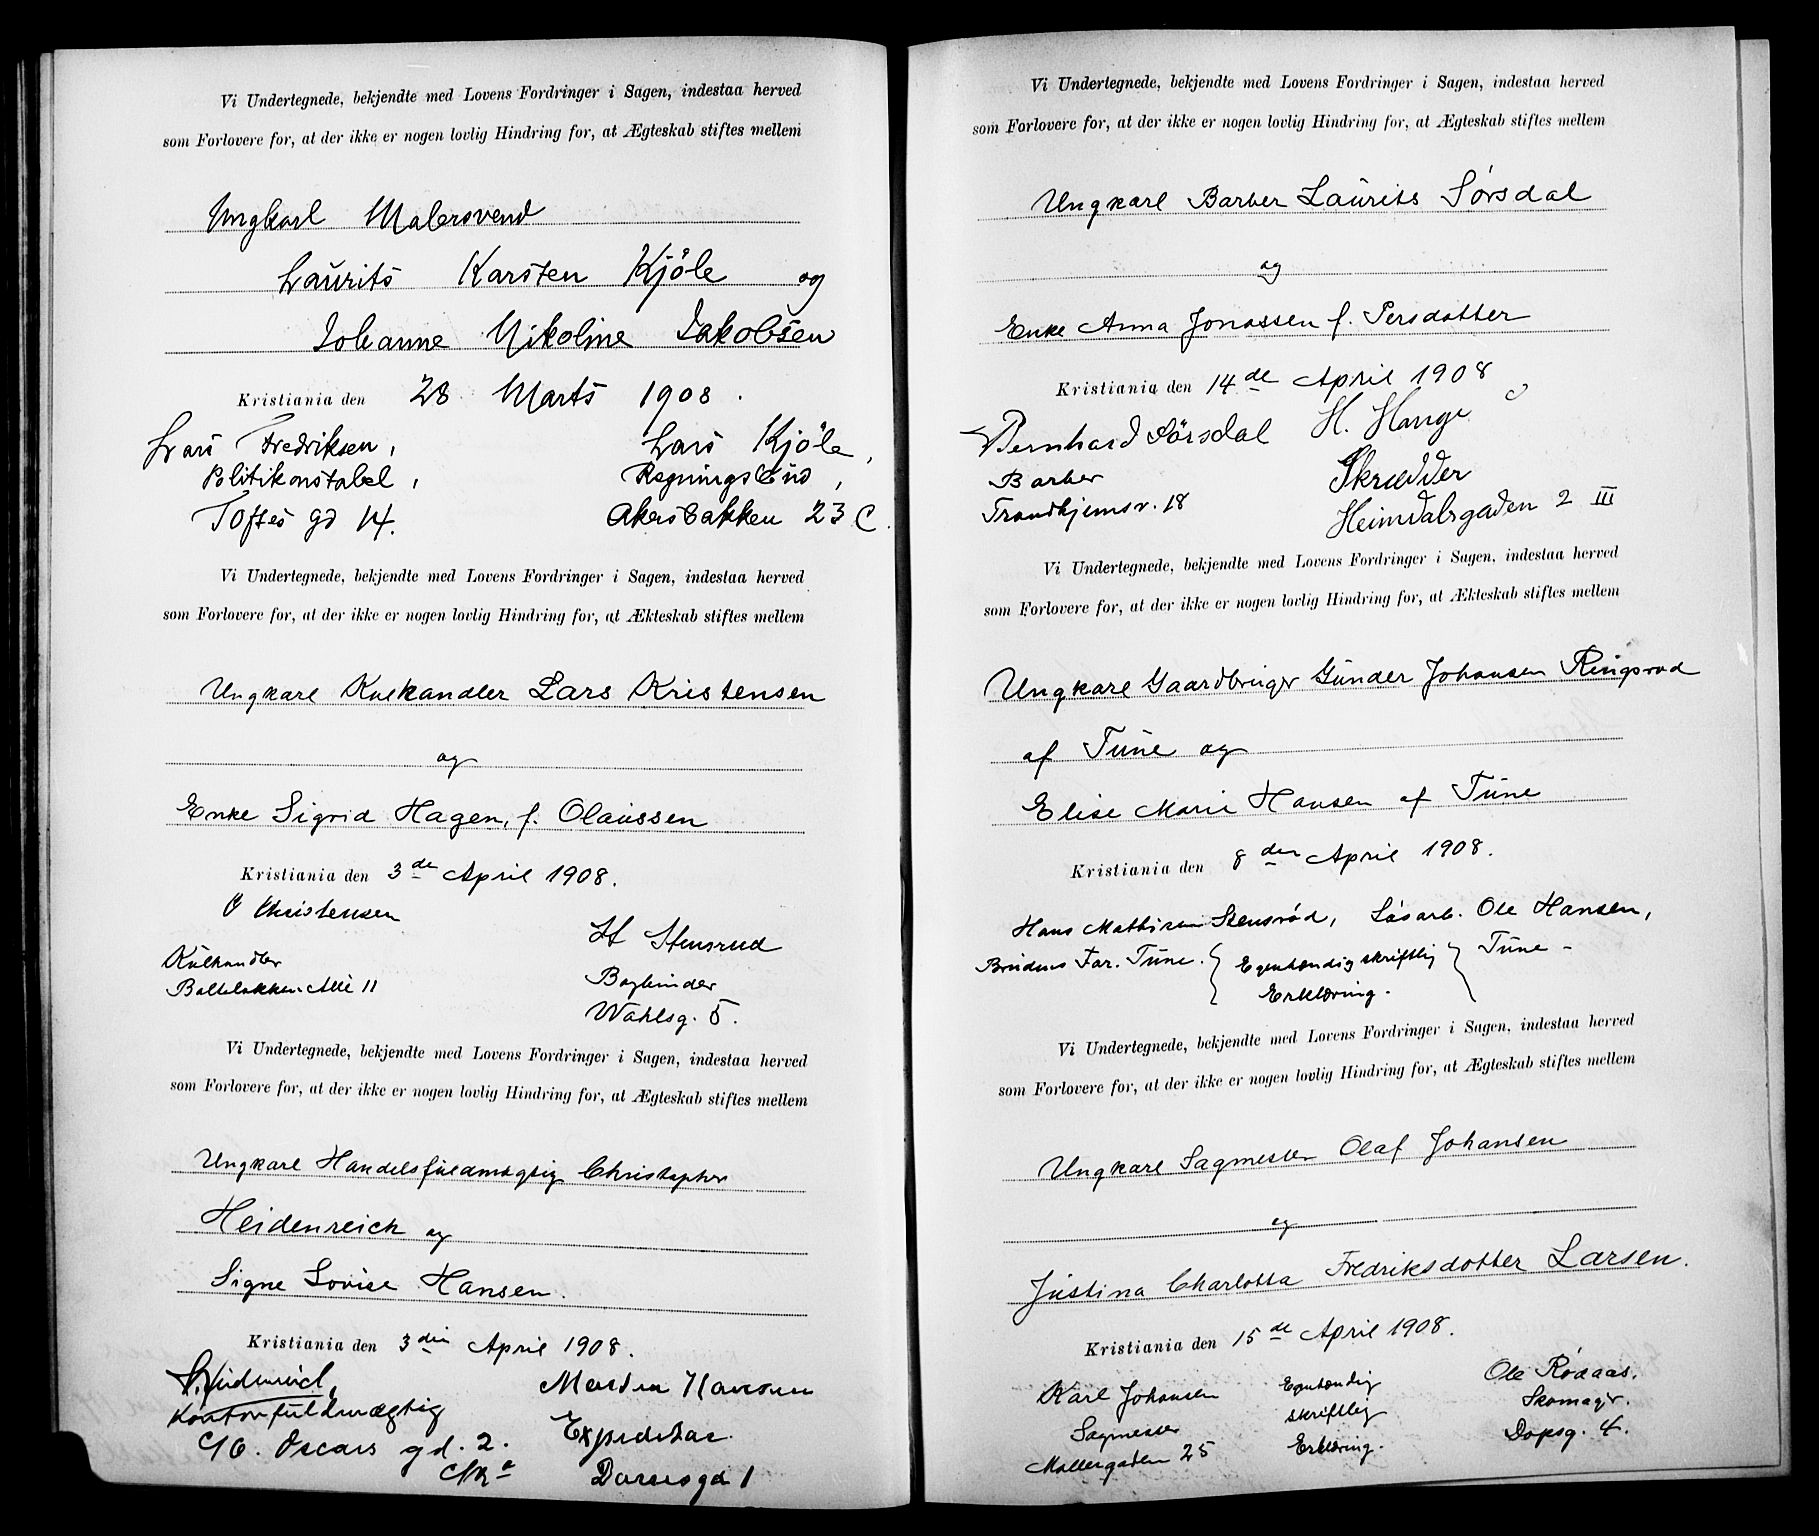 Vi Undertegnede, bekjendte med Lovens Fordringer i Sagen, indestaa herved
som Forlovere for, at der ikke er nogen lovlig Hindring for, at Ægteskab stiftes mellem
Ungkarl Malersvend
Laurits Karsten Kjöle og
Johanne Nikoline Jakobsen
Kristiania den 28 Marts 1908.
Lars Fredriksen, Lars Kjöle,
Politikonstabel, Regningsbud,
Toftes gd 14. Akersbakken 23 C.
Vi Undertegnede, bekjendte med Lovens Fordringer i Sagen, indestaa herved
som Forlovere for, at der ikke er nogen lovlig Hindring for, at Ækteskab stiftes mellem
Ungkarl Kulhandler Lars Kristensen
og
Enke Sigrid Hagen, f. Olaussen
Kristiania den 3de April 1908.
Christensen
H Stensrud
Kulhandler Bogbinder
Wahlsg. 5.
Vi Undertegnede, bekjendte med Lovens Fordringer i Sagen, indestaa herved
som Forlovere for, at der ikke er nogen lovlig Hindring for, at Ægteskab stiftes mellem
Ungkarl Handelsfuldmægtig Christopher
Heidenreich og
Signe Lovise Hansen.
Kristiania den 3die April 1908.
Heidenreich, Hansen
Kontorfuldmægtig
Oscars gd. 2.
Vi Undertegnede, bekjendte med Lovens Fordringer i Sagen, indestaa herved
som Forlovere for, at der ikke er nogen lovlig Hindring for, at Ægteskab stiftes mellem
Ungkarl Barber Laurits Sørsdal
og
Enke Anna Jonassen f. Persdotter
Kristiania den 14de April 1908
Bernhard Sørsdal H. Hauge
Barber Skrædder
Trondhjemsv. 18 Heimdalsgaden 2 III
Vi Undertegnede, bekjendte med Lovens Fordringer i Sagen, indestaa herved
som Forlovere for, at der ikke er nogen lovlig Hindring for, at Ækteskab stiftes mellem
Ungkarl Gaardbruger Gunder Johansen
af Tune og
Elise Marie Hansen af Tune
Kristiania den 8den April 1908.
Hans Mathisen Stensrød, Løsarb. Ole Hansen,
Brudens Far. Tune. Egenhændig skriftlig Tune -
Erklæring.
Vi Undertegnede, bekjendte med Lovens Fordringer i Sagen, indestaa herved
som Forlovere for, at der ikke er nogen lovlig Hindring for, at Ægteskab stiftes mellem
Ungkarl Sagmester Olaf Johansen
og
Justina Charlotta Fredriksdotter Larsen.
Kristiania den 15de April 1908.
Karl Johansen Egenhændig Ole Rødaas.
Sagmester skriftlig Skomagr.
Møllergaden 25 Erklæring. Dopsg. 4.